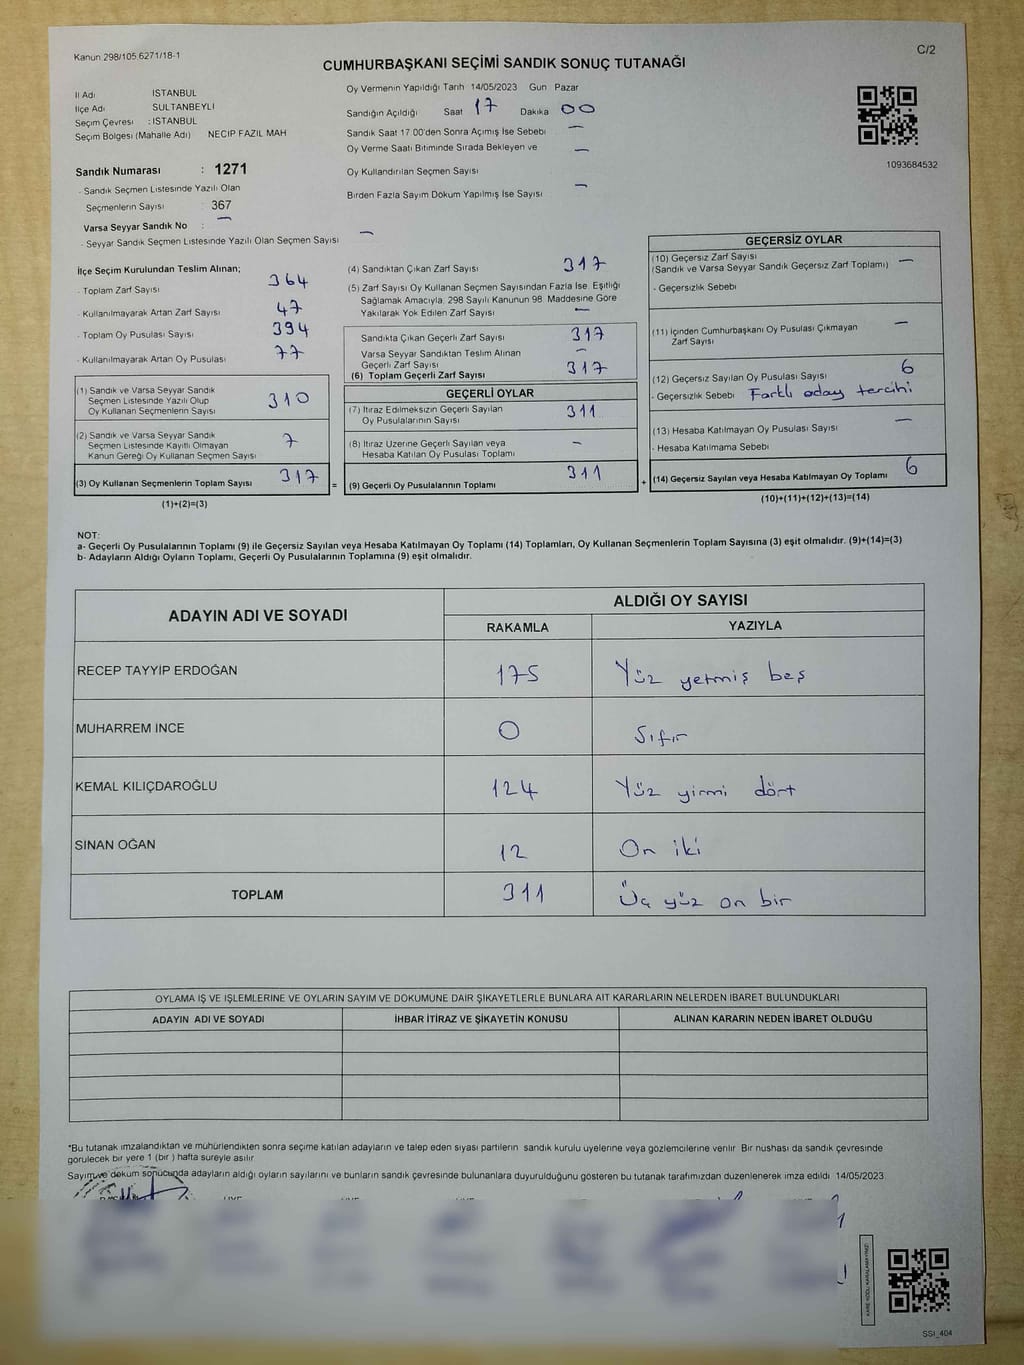 Kanun 298/105 6271/18-1
C/2
CUMHURBAŞKANI SEÇİMİ SANDIK SONUÇ TUTANAĞI
İl Adı İSTANBUL
İlçe Adı SULTANBEYLİ
Seçim Çevresi : İSTANBUL
Seçim Bölgesi (Mahalle Adı) NECİP FAZIL MAH
Sandık Numarası : 1271
- Sandık Seçmen Listesinde Yazılı Olan
Seçmenlerin Sayısı : 367
Varsa Seyyar Sandık No : –
- Seyyar Sandık Seçmen Listesinde Yazılı Olan Seçmen Sayısı –
Oy Vermenin Yapıldığı Tarih 14/05/2023 Gün Pazar
Sandığın Açıldığı Saat 17 Dakika 00
Sandık Saat 17 00'den Sonra Açımış İse Sebebi –
Oy Verme Saati Bitiminde Sırada Bekleyen ve –
Oy Kullandırılan Seçmen Sayısı
Birden Fazla Sayım Döküm Yapılmış İse Sayısı –
1093684532
İlçe Seçim Kurulundan Teslim Alınan;
- Toplam Zarf Sayısı 364
- Kullanılmayarak Artan Zarf Sayısı 47
- Toplam Oy Pusulası Sayısı 394
- Kullanılmayarak Artan Oy Pusulası 77
(1) Sandık ve Varsa Seyyar Sandık
Seçmen Listesinde Yazılı Olup
Oy Kullanan Seçmenlerin Sayısı 310
(2) Sandık ve Varsa Seyyar Sandık
Seçmen Listesinde Kayıtlı Olmayan
Kanun Gereği Oy Kullanan Seçmen Sayısı 7
(3) Oy Kullanan Seçmenlerin Toplam Sayısı 317 =
(1)+(2)=(3)
(4) Sandıktan Çıkan Zarf Sayısı 317
(5) Zarf Sayısı Oy Kullanan Seçmen Sayısından Fazla İse. Eşitliği
Sağlamak Amacıyla, 298 Sayılı Kanunun 98. Maddesine Göre
Yakılarak Yok Edilen Zarf Sayısı –
Sandıkta Çıkan Geçerli Zarf Sayısı 317
Varsa Seyyar Sandıktan Teslim Alınan
Geçerli Zarf Sayısı –
(6) Toplam Geçerli Zarf Sayısı 317
GEÇERLİ OYLAR
(7) İtiraz Edilmeksizin Geçerli Sayılan
Oy Pusulalarının Sayısı 311
(8) İtiraz Üzerine Geçerli Sayılan veya
Hesaba Katılan Oy Pusulası Toplamı –
(9) Geçerli Oy Pusulalarının Toplamı 311 +
GEÇERSİZ OYLAR
(10) Geçersiz Zarf Sayısı
(Sandık ve Varsa Seyyar Sandık Geçersiz Zarf Toplamı) –
- Geçersizlik Sebebi
(11) İçinden Cumhurbaşkanı Oy Pusulası Çıkmayan
Zarf Sayısı –
(12) Geçersiz Sayılan Oy Pusulası Sayısı 6
- Geçersizlik Sebebi Farklı aday tercihi
(13) Hesaba Katılmayan Oy Pusulası Sayısı –
- Hesaba Katılmama Sebebi
(14) Geçersiz Sayılan veya Hesaba Katılmayan Oy Toplamı 6
(10)+(11)+(12)+(13)=(14)
NOT:
a- Geçerli Oy Pusulalarının Toplamı (9) ile Geçersiz Sayılan veya Hesaba Katılmayan Oy Toplamı (14) Toplamları, Oy Kullanan Seçmenlerin Toplam Sayısına (3) eşit olmalıdır. (9)+(14)=(3)
b- Adayların Aldığı Oyların Toplamı, Geçerli Oy Pusulalarının Toplamına (9) eşit olmalıdır.
ADAYIN ADI VE SOYADI ALDIĞI OY SAYISI
RAKAMLA YAZIYLA
RECEP TAYYİP ERDOĞAN 175 Yüz yetmiş beş
MUHARREM İNCE 0 Sıfır
KEMAL KILIÇDAROĞLU 124 Yüz yirmi dört
SİNAN OĞAN 12 On iki
TOPLAM 311 Üç yüz on bir
OYLAMA İŞ VE İŞLEMLERİNE VE OYLARIN SAYIM VE DÖKÜMÜNE DAİR ŞİKAYETLERLE BUNLARA AİT KARARLARIN NELERDEN İBARET BULUNDUKLARI
ADAYIN ADI VE SOYADI İHBAR İTİRAZ VE ŞİKAYETİN KONUSU ALINAN KARARIN NEDEN İBARET OLDUĞU
*Bu tutanak imzalandıktan ve mühürlendikten sonra seçime katılan adayların ve talep eden siyasi partilerin sandık kurulu üyelerine veya gözlemcilerine verilir Bir nüshası da sandık çevresinde
görülecek bir yere 1 (bir ) hafta süreyle asılır
Sayım ve döküm sonucunda adayların aldığı oyların sayılarını ve bunların sandık çevresinde bulunanlara duyurulduğunu gösteren bu tutanak tarafımızdan düzenlenerek imza edildi 14/05/2023
KARE KODU KARALAMAYINIZ!
SSI_404